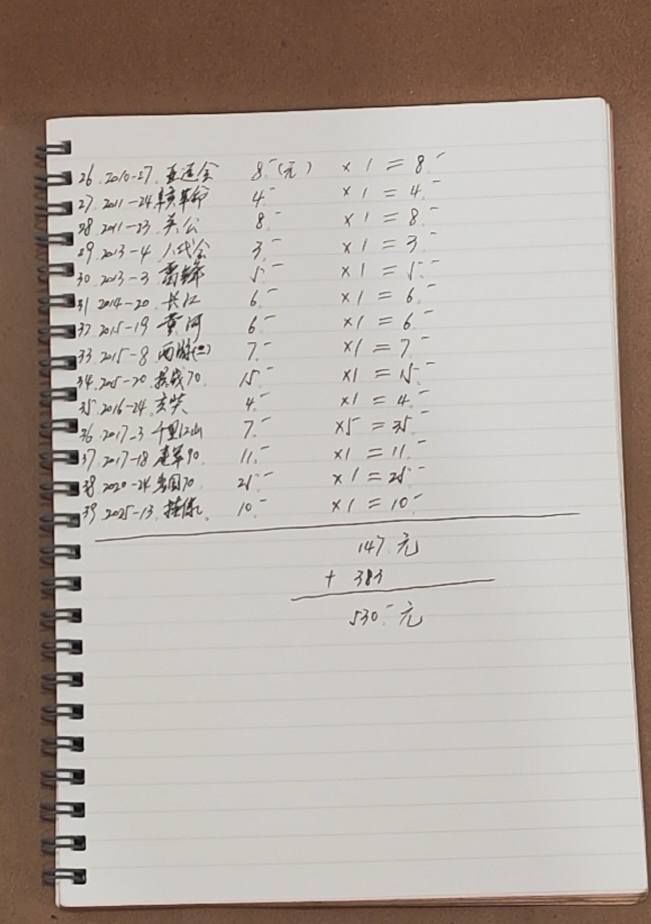 26. 2010-27. 亚运会 8.-(元) ×1 = 8.-
27. 2011-24 辛亥革命 4.- ×1 = 4.-
28. 2011-23 关公 8.- ×1 = 8.-
29. 2013-4 八代会 3.- ×1 = 3.-
30. 2013-3 雷锋 5.- ×1 = 5.-
31 2014-20. 长江 6.- ×1 = 6.-
32. 2015-19 黄河 6.- ×1 = 6.-
33. 2015-8 西游(二) 7.- ×1 = 7.-
34. 2015-20 抗战70. 15.- ×1 = 15.-
35. 2016-24. 玄奘 4.- ×1 = 4.-
36. 2017-3 千里江山 7.- ×5 = 35.-
37. 2017-18 建军90 11.- ×1 = 11.-
38. 2020-24 出国70 25.- ×1 = 25.-
39. 2025-13. 10.- ×1 = 10.-
147.元
+ 383
530.-元